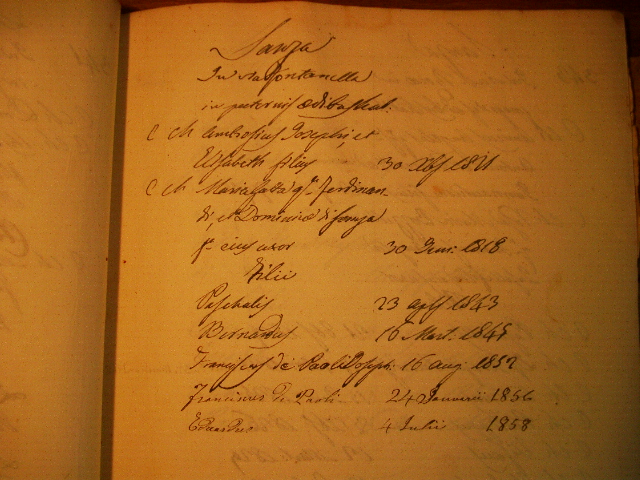 Sanza
In via Fontanella
in paternis ædibus
C Ch Ambrosius Josephi, et
Elisabeth filius 30 Xbris
C Ch Maria qm Ferdinan-
di, et Dominicæ di Sanza
ejus uxor 30 1818
Filii
Paschalis 23 1843
Bernardus 16 Mart.
Franciscus de Paoli Joseph. 16 aug. 1852
Franciscus de Paoli 24 Januarii 1856
Eduardus 4 Julii 1858